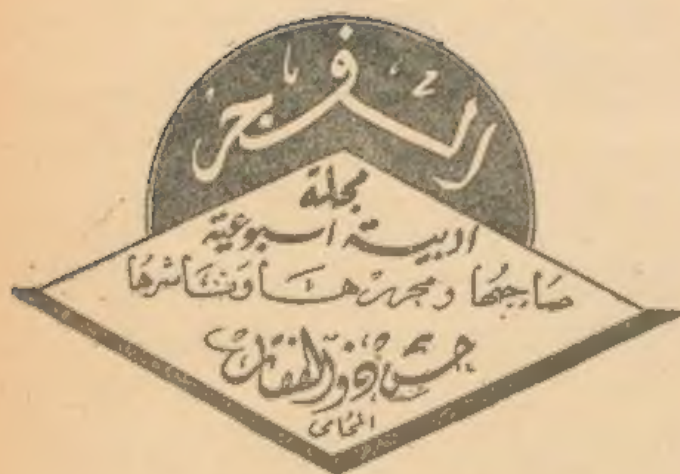 الفجر
مجلة
ادبية اسبوعية
صاحبها ومحررها وناشرها
ذو الفقار
المحامى